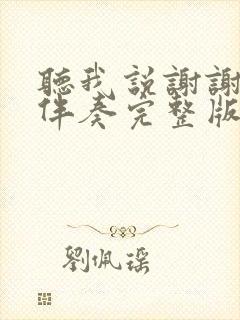 聽我說謝謝
伴奏完整版
劉佩瑶